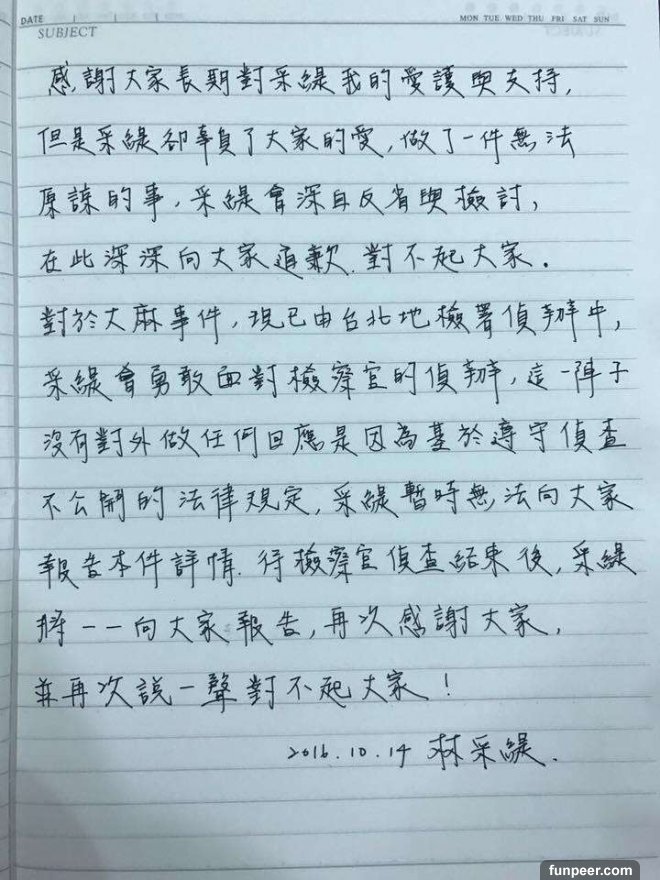 DATE
MON TUE WED THU FRI SAT SUN
SUBJECT
感謝大家長期對采緹我的愛護與支持,
但是采緹卻辜負了大家的愛,做了一件無法
原諒的事,采緹會深自反省與檢討,
在此深深向大家道歉.對不起大家.
對於大麻事件,現已由台北地檢署偵辦中,
采緹會勇敢面對檢察官的偵辦,這一陣子
沒有對外做任何回應是因為基於遵守偵查
不公開的法律規定,采緹暫時無法向大家
報告本件詳情.待檢察官偵查結束後,采緹
將一一向大家報告,再次感謝大家,
並再次說一聲對不起大家!
2016.10.14 林采緹.
funpeer.com